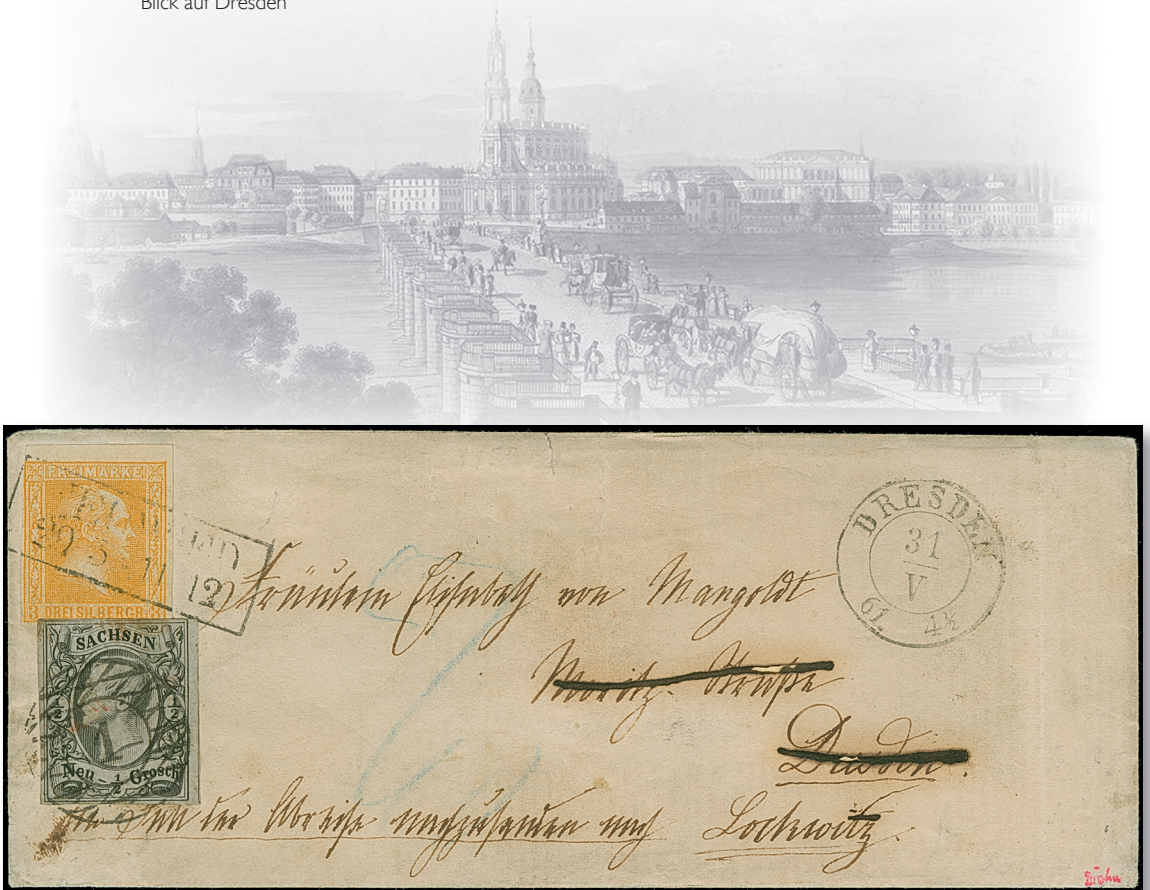 Blick auf Dresden
FREIMARKE
3 DREI SILBERGR. 3
12
SACHSEN
1/2 1/2
Neu - 1/2 Grosch
DRESDEN
31
V
61. 4½
Fräulein Elisabeth von Mangoldt
Moritz-Straße
Dresden.
der Abreise nachzusenden nach Lockwitz.